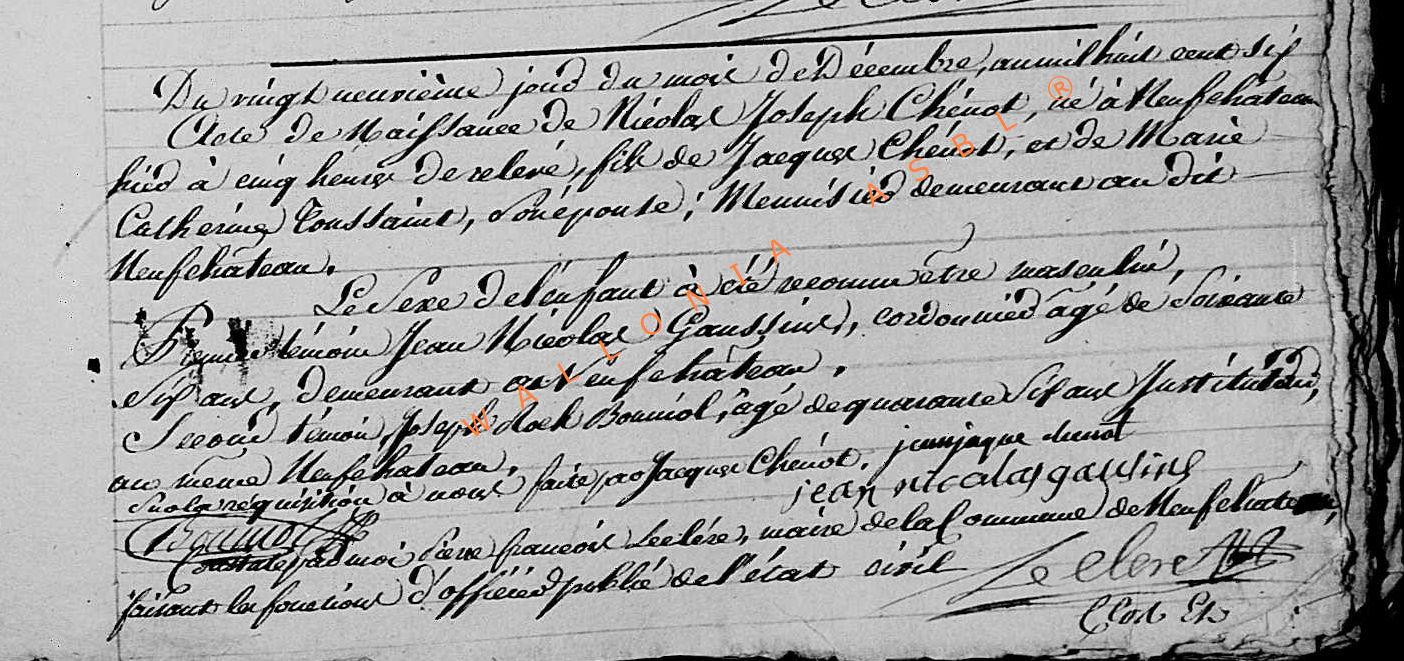 Du vingt neuvième jour du mois de Décembre, an mil huit cent six
Acte de Naissance de Nicolas Joseph Chénot, né à Neufchâteau
hier à cinq heures de relevé, fils de Jacques Chénot, et de Marie
Catherine Toussaint, son épouse, Menuisier demeurant au dit
Neufchâteau.
Le Sexe de l'enfant à été reconnu être masculin,
Premier témoin Jean Nicolas Gaussin, cordonnier âgé de Soixante
Six ans, demeurant a Neufchâteau.
Second témoin, Joseph Roch Bonniol, âgé de quarante Six ans Instituteur,
au même Neufchateau.
Sur la réquisition à nous faite par Jacques Chénot. jean jaque chenot
jean nicolas gausine
Bonniol
Constaté par moi Pierre François Leclére, maire de la Commune de Neufchateau,
faisant les fonctions d'officier public de l'état civil
Leclere
Clos Et
WALLONIA ASBL ®